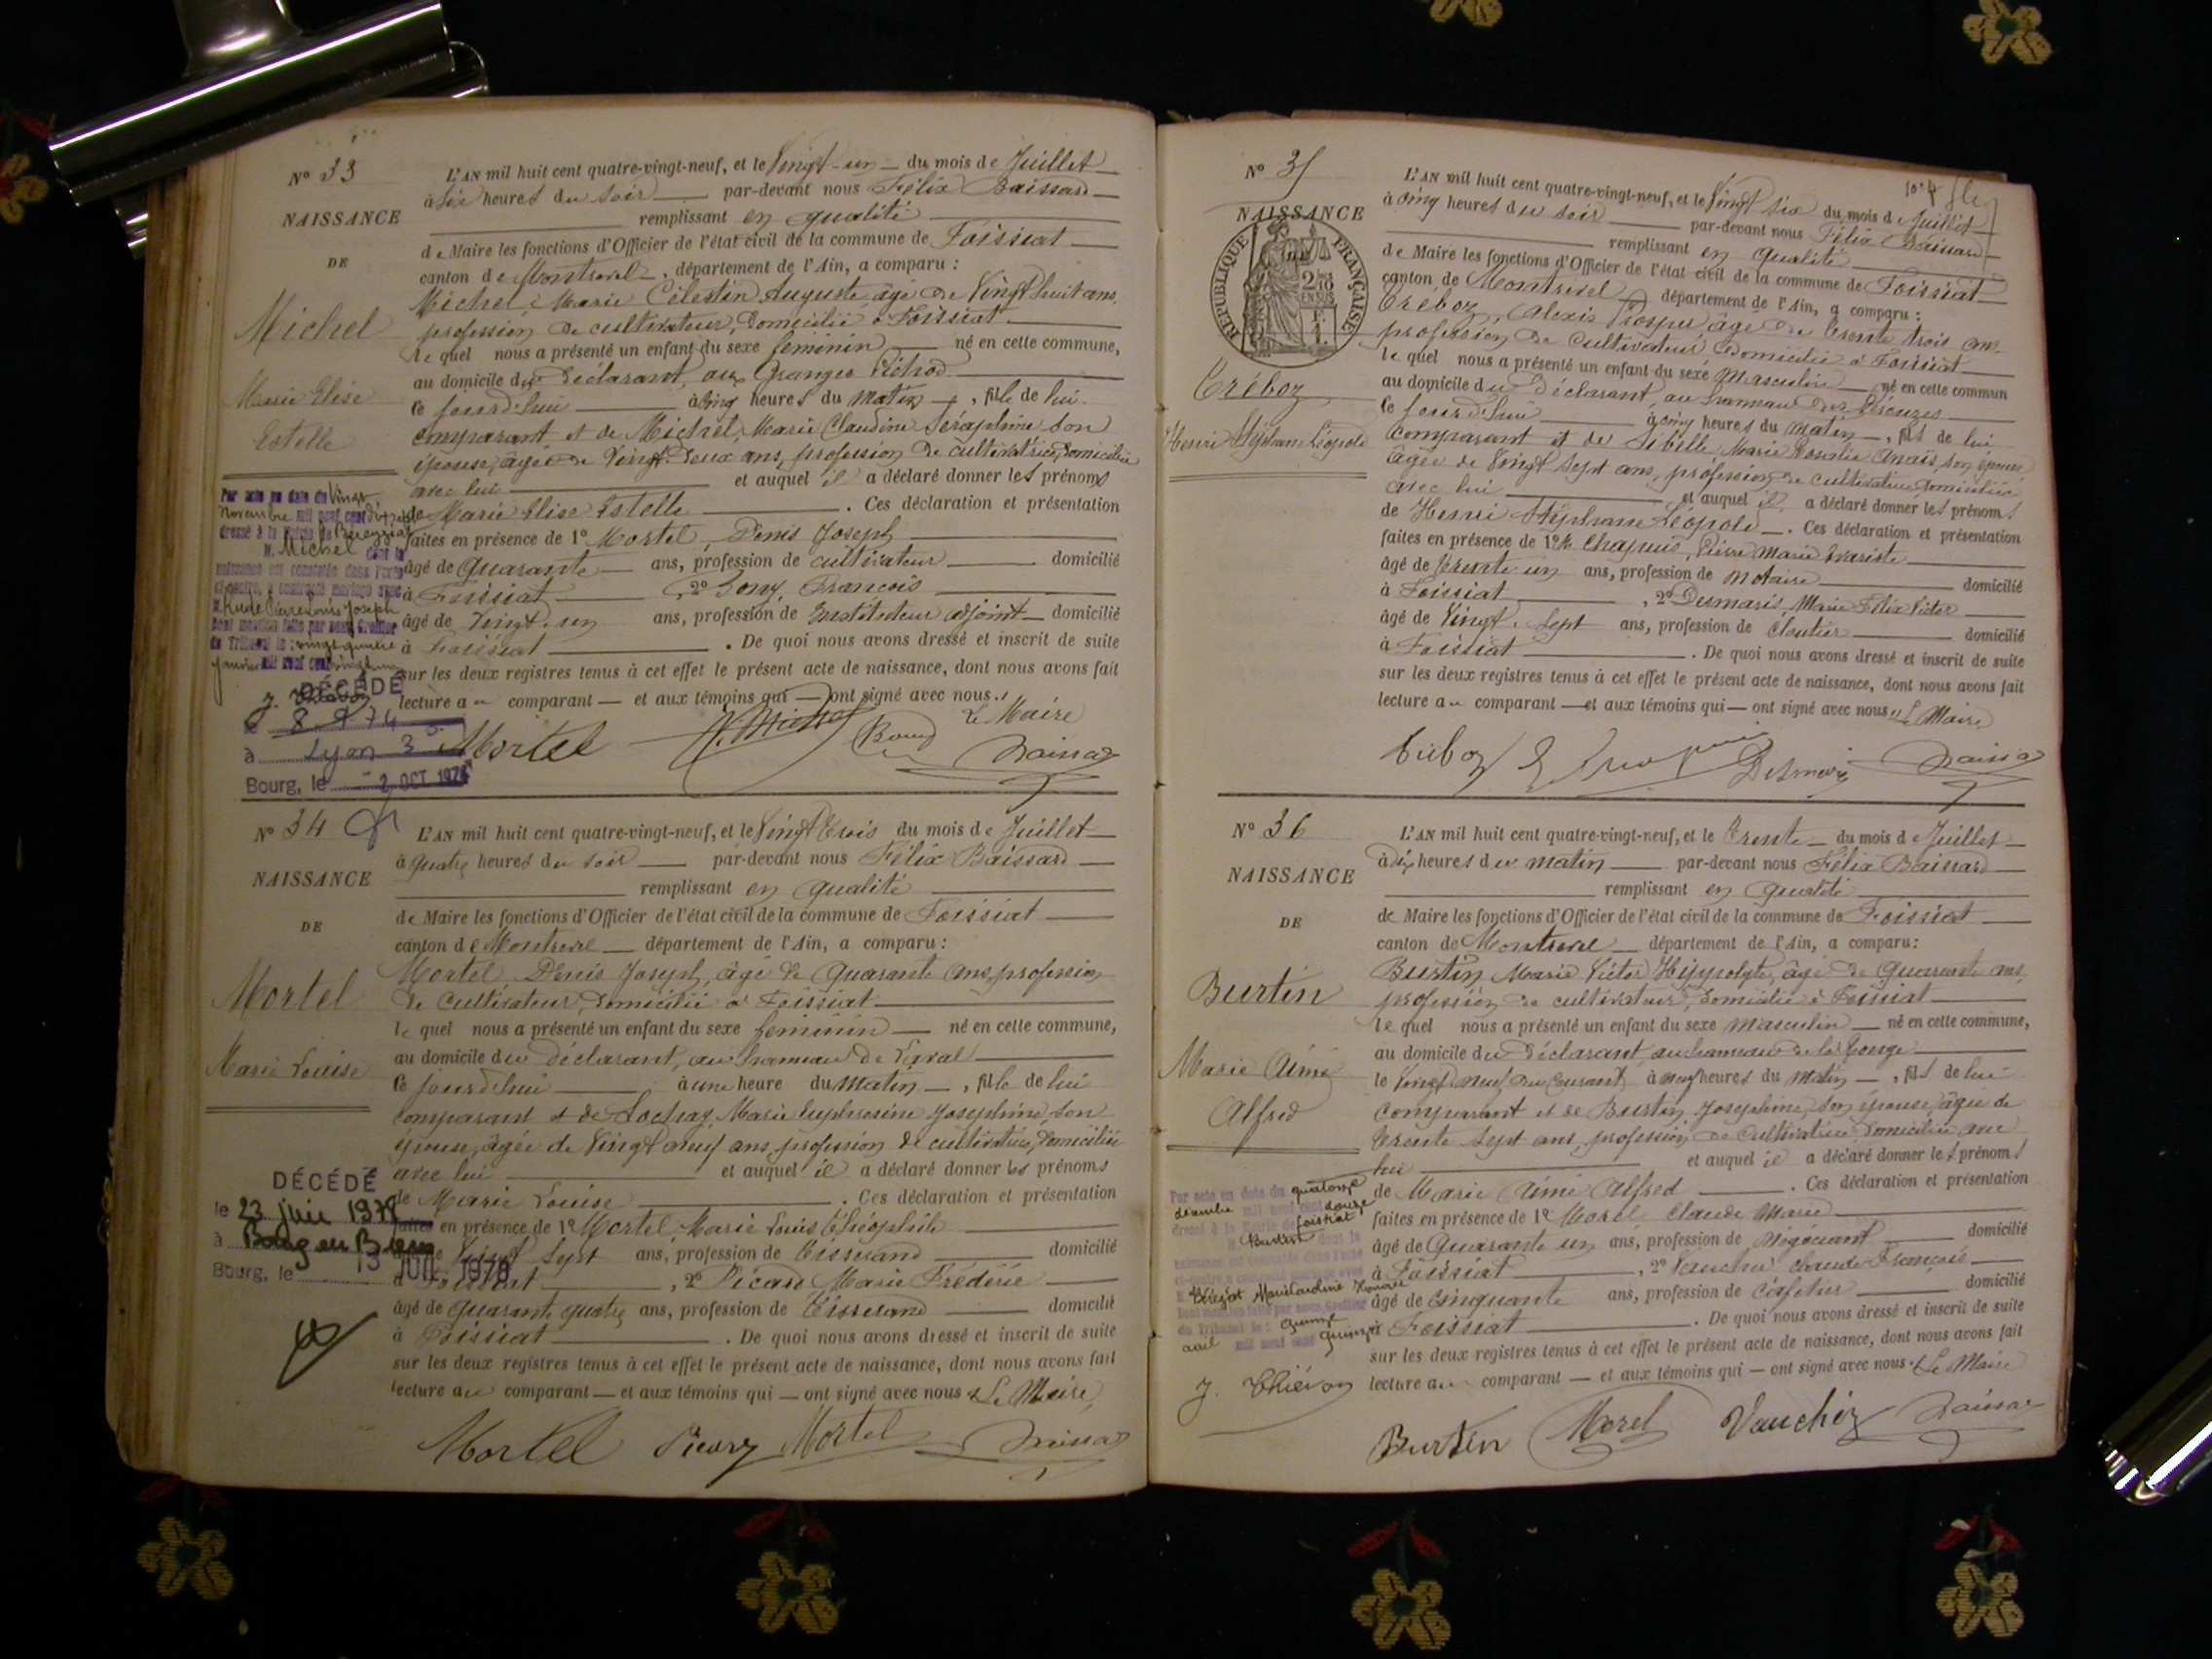 N° 33
NAISSANCE
DE
Michel
Marie Elise
Estelle
L'AN mil huit cent quatre-vingt-neuf, et le Vingt-un du mois de Juillet
à six heures du soir par-devant nous Félix Baissard
remplissant en qualité
de Maire les fonctions d'Officier de l'état civil de la commune de Foissiat
canton de Montrevel, département de l'Ain, a comparu :
Michel, Marie Célestin Auguste, âgé de Vingt huit ans,
profession de cultivateur, domicilié à Foissiat
lequel nous a présenté un enfant du sexe féminin né en cette commune,
au domicile du déclarant, aux Granges
ce jourd'hui à cinq heures du matin, fille de lui
comparant et de Michel, Marie Claudine Séraphine son
épouse, âgée de Vingt-deux ans, profession de cultivatrice, domiciliée
avec lui et auquel il a déclaré donner les prénoms
de Marie Elise Estelle. Ces déclaration et présentation
faites en présence de 1° Mortel, Denis Joseph
âgé de Quarante ans, profession de cultivateur domicilié
à Foissiat, 2° François
âgé de Vingt-un ans, profession de Instituteur adjoint domicilié
à Foissiat. De quoi nous avons dressé et inscrit de suite
sur les deux registres tenus à cet effet le présent acte de naissance, dont nous avons fait
lecture au comparant et aux témoins qui ont signé avec nous.
Le Maire
Mortel
Par acte en date du Vingt
Novembre mil neuf cent
dressé à la Mairie de
M. Michel dont la
naissance est constatée dans l'acte
ci-contre, a contracté mariage avec
Pierre Louis Joseph
Dont mention faite par nous, Greffier
du Tribunal le : vingt quatre
janvier mil neuf cent vingt
DÉCÉDÉ
le 8 9 74
à Lyon 3e
Bourg, le 2 OCT 1974
N° 34
NAISSANCE
DE
Mortel
Marie Louise
L'AN mil huit cent quatre-vingt-neuf, et le Vingt trois du mois de Juillet
à quatre heures du soir par-devant nous Félix Baissard
remplissant en qualité
de Maire les fonctions d'Officier de l'état civil de la commune de Foissiat
canton de Montrevel département de l'Ain, a comparu :
Mortel Denis Joseph, âgé de Quarante ans, profession
de cultivateur, domicilié à Foissiat
lequel nous a présenté un enfant du sexe féminin né en cette commune,
au domicile du déclarant, au hameau de
ce jourd'hui à une heure du matin, fille de lui
comparant et de Marie Euphrosine Joséphine, son
épouse, âgée de Vingt neuf ans, profession de cultivatrice, domiciliée
avec lui et auquel il a déclaré donner les prénoms
de Marie Louise. Ces déclaration et présentation
faites en présence de 1° Mortel Marie Louis Théophile
âgé de Vingt sept ans, profession de Tisserand domicilié
à Foissiat, 2° Picard Marie Frédéric
âgé de quarante quatre ans, profession de Tisserand domicilié
à Foissiat. De quoi nous avons dressé et inscrit de suite
sur les deux registres tenus à cet effet le présent acte de naissance, dont nous avons fait
lecture au comparant et aux témoins qui ont signé avec nous Le Maire
Mortel Mortel
DÉCÉDÉ
le 23 juin 1978
à Bourg en Bresse
Bourg, le 13 JUIL 1978
N° 35
NAISSANCE
RÉPUBLIQUE FRANÇAISE
2/10 EN SUS
Tréboz
Henri Stéphane Léopold
L'AN mil huit cent quatre-vingt-neuf, et le Vingt six du mois de Juillet
à cinq heures du soir par-devant nous Félix Baissard
remplissant en qualité
de Maire les fonctions d'Officier de l'état civil de la commune de Foissiat
canton de Montrevel, département de l'Ain, a comparu :
Tréboz, Alexis Prosper âgé de trente trois ans,
profession de cultivateur domicilié à Foissiat
lequel nous a présenté un enfant du sexe masculin né en cette commun
au domicile du déclarant, au hameau des
ce jourd'hui à cinq heures du matin, fils de lui
comparant et de Sibelle Marie Rosalie Anaïs, son épouse
âgée de Vingt sept ans, profession de cultivatrice domiciliée
avec lui et auquel il a déclaré donner les prénoms
de Henri Stéphane Léopold. Ces déclaration et présentation
faites en présence de 1° Chapuis, Pierre Marie Evariste
âgé de trente-un ans, profession de notaire domicilié
à Foissiat, 2° Desmaris, Marie Félix Victor
âgé de Vingt-sept ans, profession de cloutier domicilié
à Foissiat. De quoi nous avons dressé et inscrit de suite
sur les deux registres tenus à cet effet le présent acte de naissance, dont nous avons fait
lecture au comparant et aux témoins qui ont signé avec nous. Le Maire
Tréboz Desmaris
N° 36
NAISSANCE
DE
Burtin
Marie Aimé
Alfred
L'AN mil huit cent quatre-vingt-neuf, et le Trente du mois de Juillet
à dix heures du matin par-devant nous Félix Baissard
remplissant en qualité
de Maire les fonctions d'Officier de l'état civil de la commune de Foissiat
canton de Montrevel département de l'Ain, a comparu :
Burtin, Marie Victor Hippolyte, âgé de quarante ans,
profession de cultivateur, domicilié à Foissiat
lequel nous a présenté un enfant du sexe masculin né en cette commune,
au domicile du déclarant au hameau de
le Vingt-neuf du courant, à neuf heures du matin, fils de lui
comparant et de Burtin Joséphine, son épouse, âgée de
trente sept ans, profession de cultivatrice domiciliée avec
lui et auquel il a déclaré donner les prénoms
de Marie Aimé Alfred. Ces déclaration et présentation
faites en présence de 1° Morel Claude Marie
âgé de Quarante un ans, profession de Négociant domicilié
à Foissiat, 2° Vaucher Claude François
âgé de Cinquante ans, profession de Cafetier domicilié
à Foissiat. De quoi nous avons dressé et inscrit de suite
sur les deux registres tenus à cet effet le présent acte de naissance, dont nous avons fait
lecture au comparant et aux témoins qui ont signé avec nous. Le Maire
Burtin Morel Vaucher
Par acte en date du quatorze
décembre mil neuf cent douze
dressé à la Mairie de Foissiat
M. Burtin dont la
naissance est constatée dans l'acte
ci-contre a contracté mariage avec
Marie Claudine
Dont mention faite par nous, Greffier
du Tribunal le : quinze
avril mil neuf cent quinze